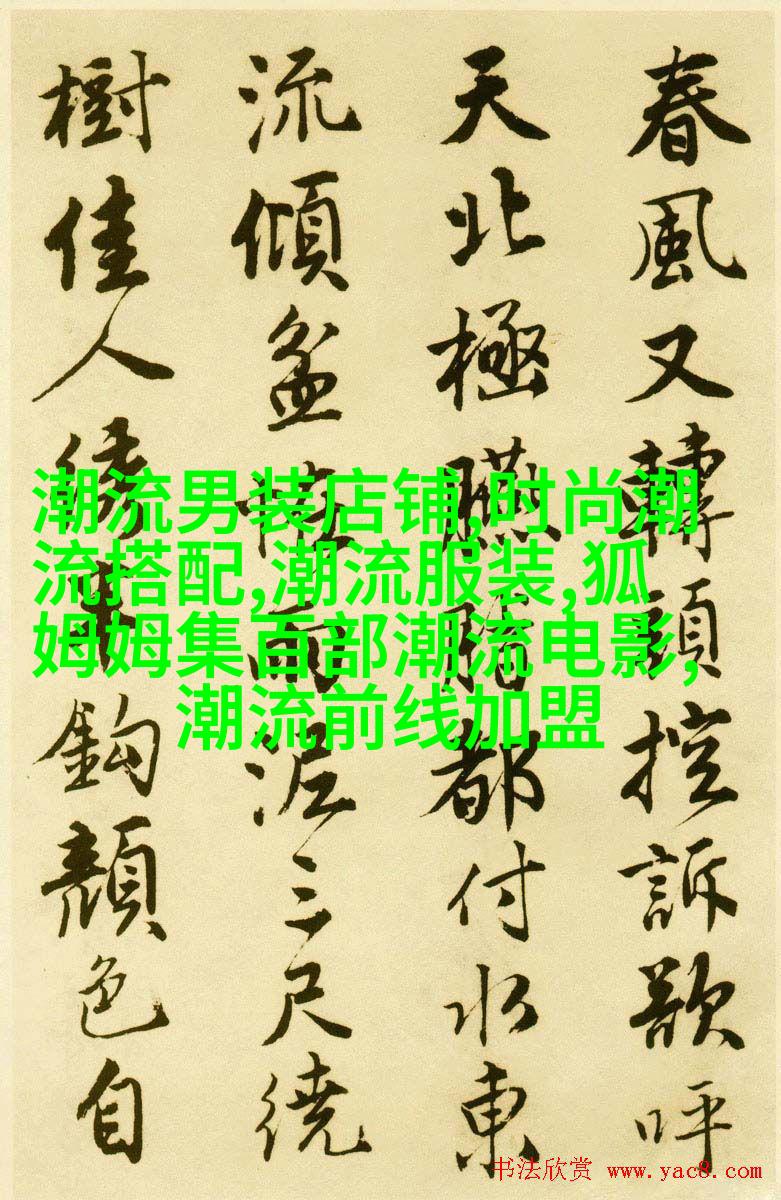 春風又轉頭控訴欲呼
天北極臙脂都付水東
流傾盆怪雨泥三尺繞
樹佳人繡半鈎顔色自
潮流男装店铺,时尚潮
流搭配,潮流服装,狐
姆姆集百部潮流电影,
潮流前线加盟
书法欣赏 www.yac8.com